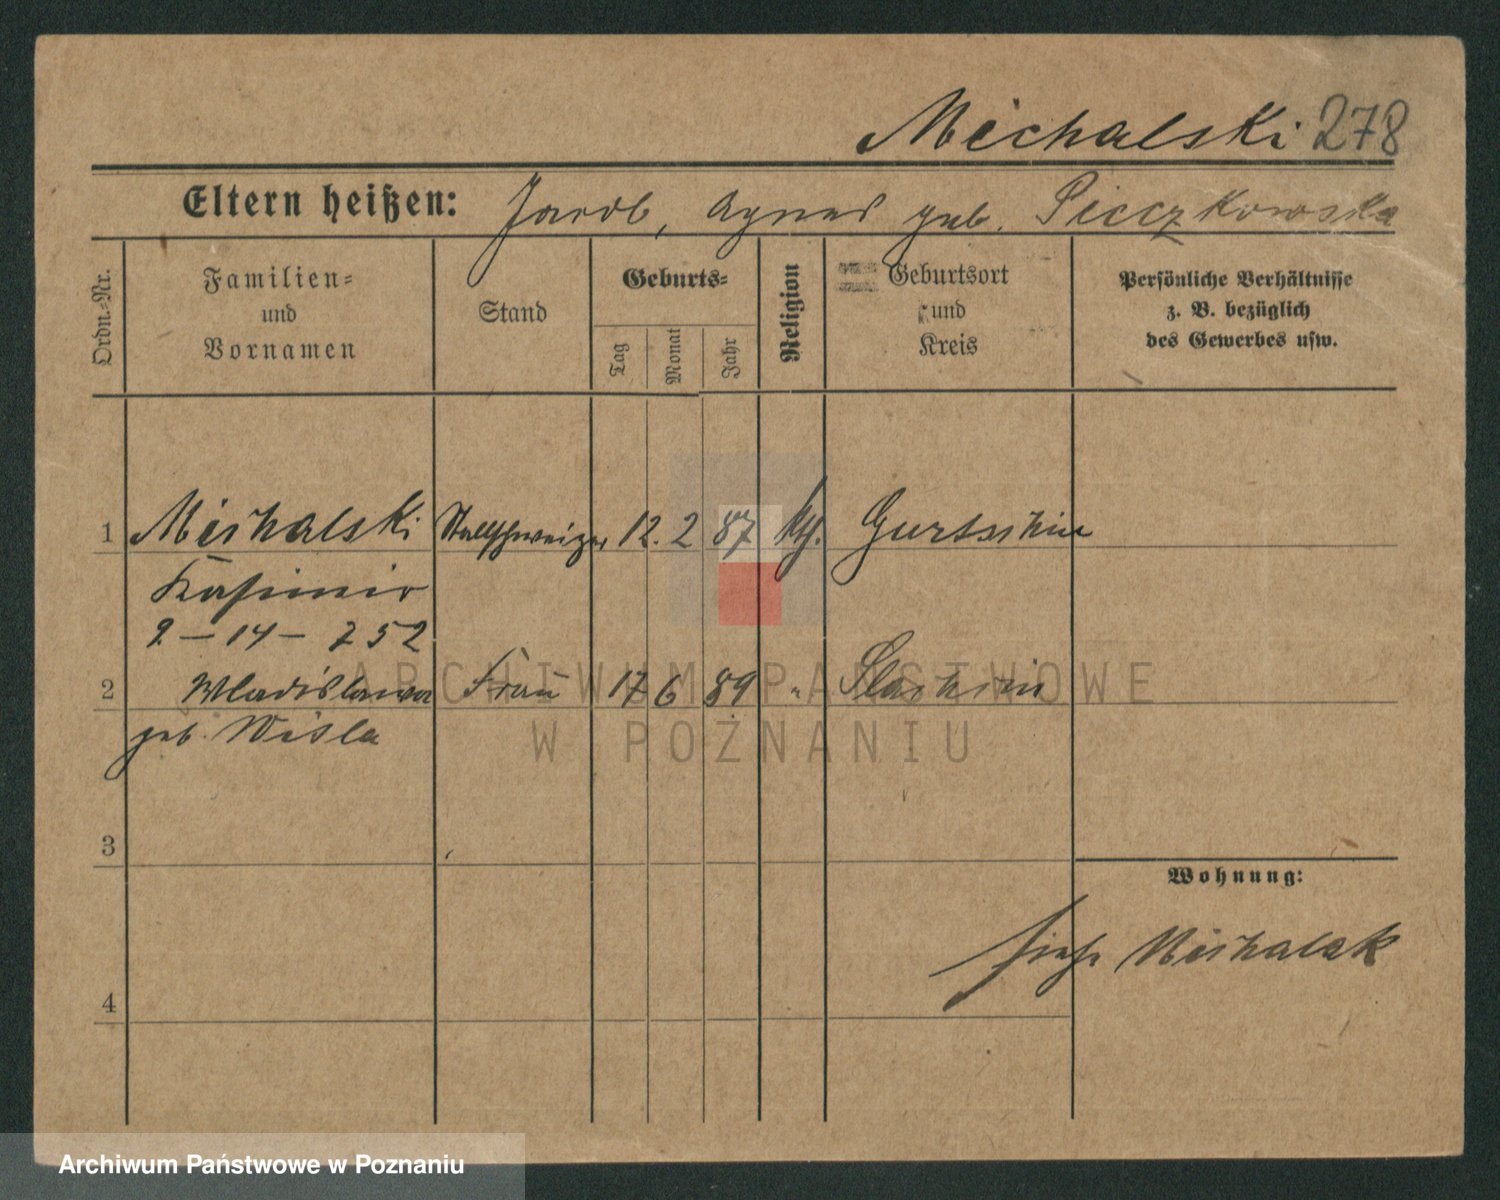 Michalski 278
Eltern heißen: Jacob, Agnes geb. Pieczkowska
Ordn.-Nr.
Familien-
und
Vornamen
Stand
Geburts-
Tag
Monat
Jahr
Religion
Geburtsort
und
Kreis
Persönliche Verhältnisse
z. B. bezüglich
des Gewerbes usw.
1 Michalski Stallschweizer 12. 2 87 kth. Gurtschin
Kasimir
9 - 14 - 752
2 Wladislawa Frau 17 6 89 "
geb. Wisla
3
Wohnung:
siehe Michalak
4
ARCHIWUM PAŃSTWOWE
W POZNANIU
Archiwum Państwowe w Poznaniu